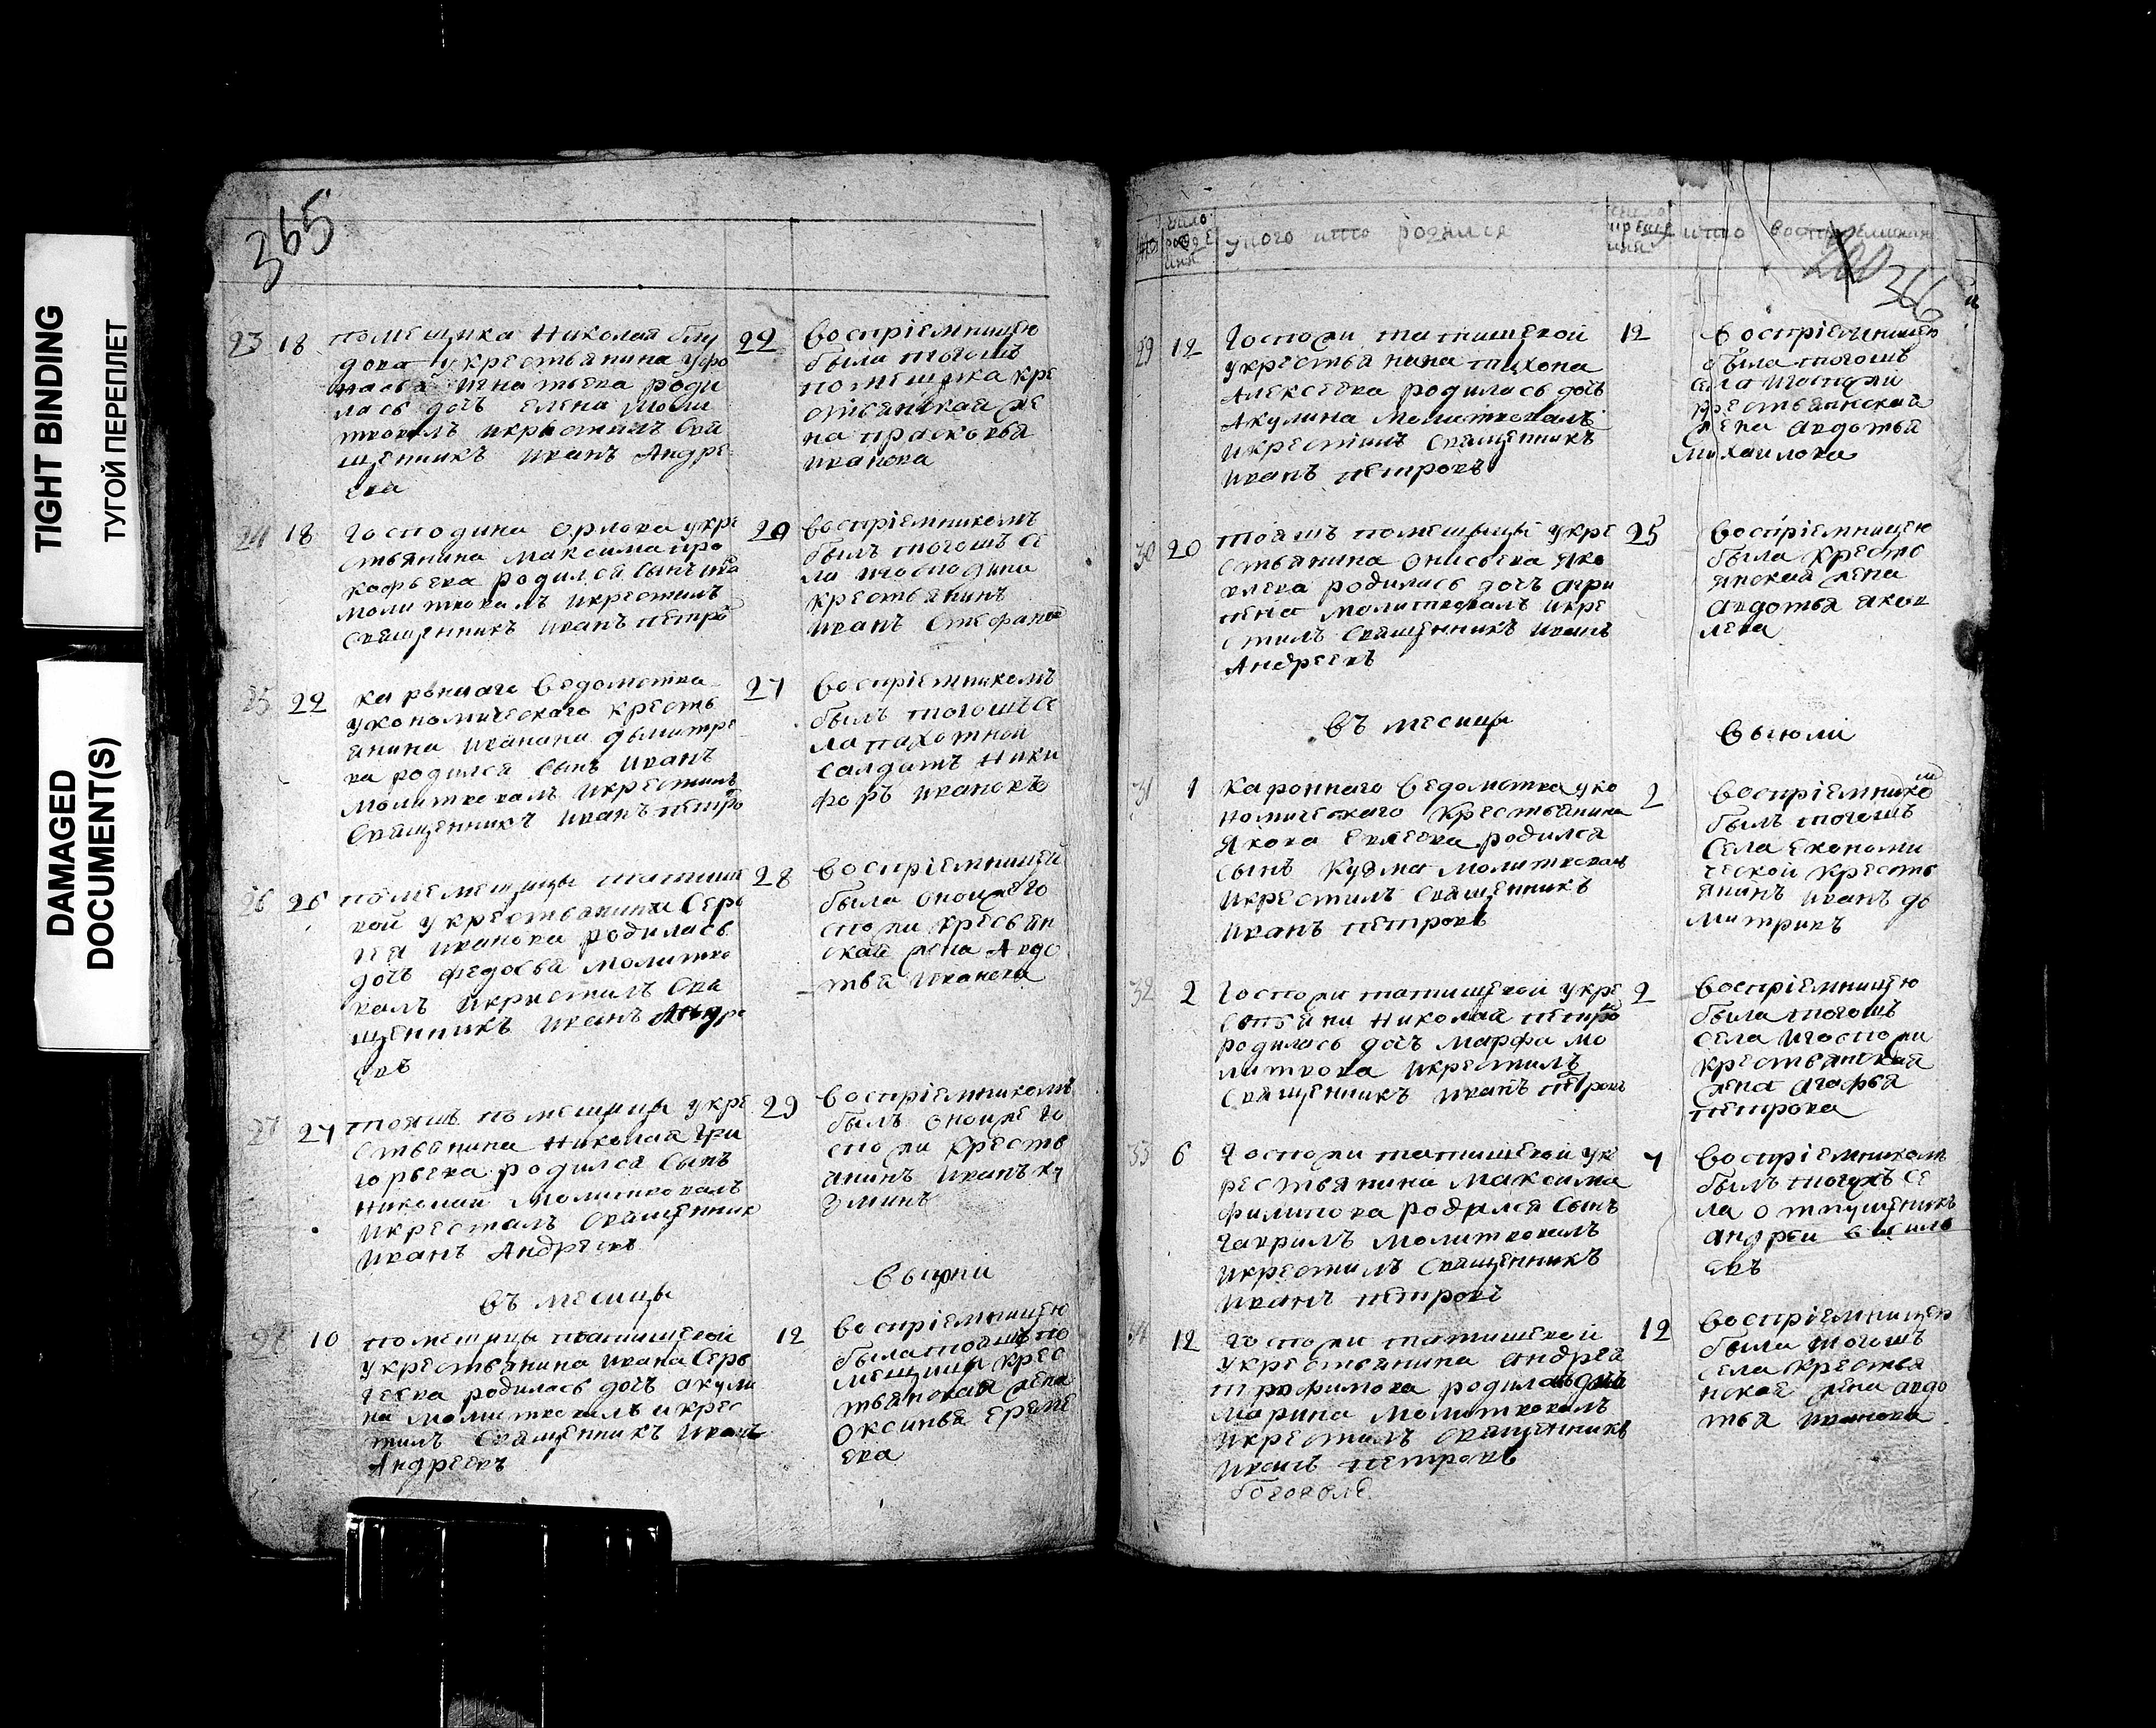 TIGHT BINDING
ТУГОЙ ПЕРЕПЛЕТ
DAMAGED
DOCUMENT(S)
365
23 18 помещика Николая Блу
дова у крестьянина Афо
насья Игнатьева роди
лась дочь Елена моли
твовалъ икрестилъ Свя
щенникъ Иванъ Андре
ева
22 восприемницею
была тогошъ
помещика кре
стьянская же
на прасковья
Иванова
24 18 Господина Орлова укре
стьянина Максима про
кофьева родился сынъ
молитвовалъ икрестилъ
священникъ Иванъ петро
20 восприемникомъ
былъ тогошъ се
ла игосподина
крестьянинъ
Иванъ Стефано
25 22 каронаго ведомства
укономического кресть
янина Ивана дьмитре
ва родился сынъ Иванъ
молитвовалъ икрестилъ
священникъ Иванъ петро
27 восприемникомъ
былъ тогошъ се
ла пахотной
салдатъ Ники
форъ Ивановъ
26 26 помемещицы татище
вой укрестьянина Серг
гея Иванова родилась
дочь федосья молитво
валъ икристилъ Свя
щенникъ Иванъ Андре
евъ
28 восприемницей
была онойже го
спожи кресьян
ская жена Авдо
тья Иванова
27 27 тояшъ помещицы укре
стьянина Николая Гри
горьева родился сынъ
Николай молитвовалъ
икрестилъ священник
Иванъ Андреевъ
29 восприемникомъ
былъ онойже го
спожи кресть
янинъ Иванъ ку
зминъ
въ месицы
въ июни
28 10 помещицы татищевой
укрестьянина Ивана Серг
геева родилась дочь акули
на молитвовалъ и крес
тилъ Священникъ Иванъ
Андреевъ
12 восприемницею
была тояшъ по
мещицы крес
тьянская жена
Оксинья Ереме
ева
число
рожде
ния
укого кто родился
число
креще
ния
кто восприемники
200 366
29 12 Госпожи татищевой
укрестьянина тихона
Алексеева родилась дочь
Акулина молитвовалъ
икрестилъ священникъ
Иванъ петровъ
12 восприемницею
была тогошъ
села игоспожи
крестьянская
жена авдотья
Михаилова
30 20 тояшъ помещицы укре
стьянина Онисьева Яко
влева родилась дочь агри
пена молитвовалъ икре
стилъ священникъ Иванъ
Андреевъ
25 восприемницею
была крестъ
янская жена
авдотья яков
лева
въ месицы
въ июли
31 1 каронного ведомства уко
номического крестьянина
Якова Евлеева родился
сынъ Кузма молитвовалъ
икрестилъ священникъ
Иванъ петровъ
2 восприемнико
былъ тогошъ
села економи
ческой кресть
янинъ Иванъ дь
митривъ
32 2 Госпожи татищевой укре
стьяни Николая петро
родилась дочь марфа мо
литвова икрестилъ
священникъ Иванъ петровъ
2 восприемницею
была тогошъ
села игоспожи
крестьянская
жена агафья
петрова
33 6 Госпожи татищевой ук
рестьянина Максима
филипова родился сынъ
гаврилъ молитвовалъ
икрестилъ священникъ
Иванъ петровъ
7 восприемникомъ
былъ тогожъ се
ла отпущеникъ
андреи василь
евъ
34 12 Госпожи татищевой
укрестьянина андрея
трофимова родилась дочь
марина молитвовалъ
икрестилъ священникъ
Иванъ петровъ
богоявле
12 восприемницею
была тогошъ
села крестья
нская жена авдо
тья Иванова